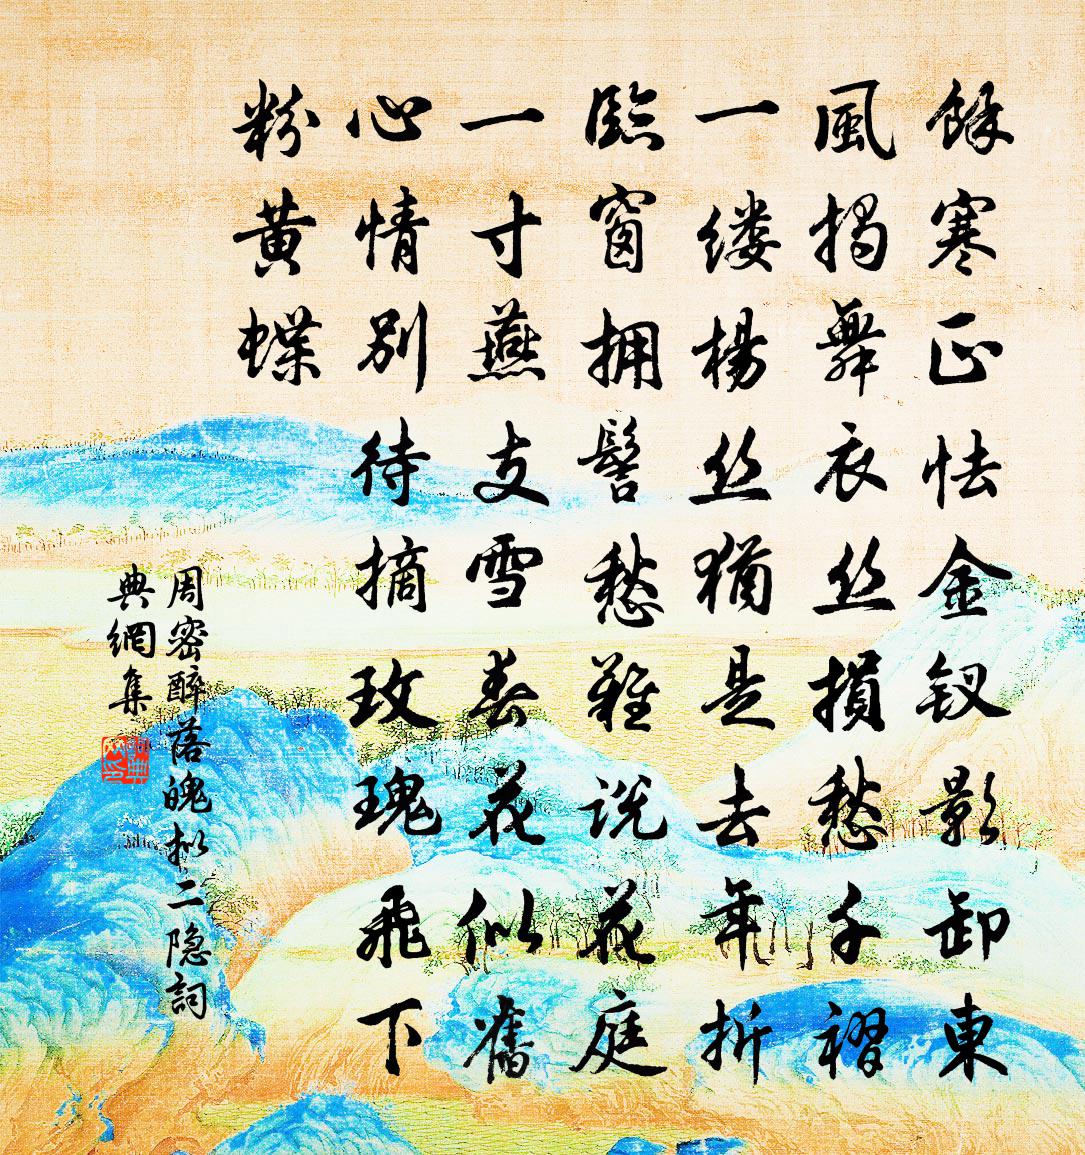 餘寒正怯金釵影卸東
風揭舞衣丝損愁千褶
一缕楊丝猶是去年折
臨窗拥髻愁難説花庭
一寸燕支雪春花似舊
心情别待摘玫瑰飛下
粉黄蝶
周密醉落魄拟二隐詞
典網集